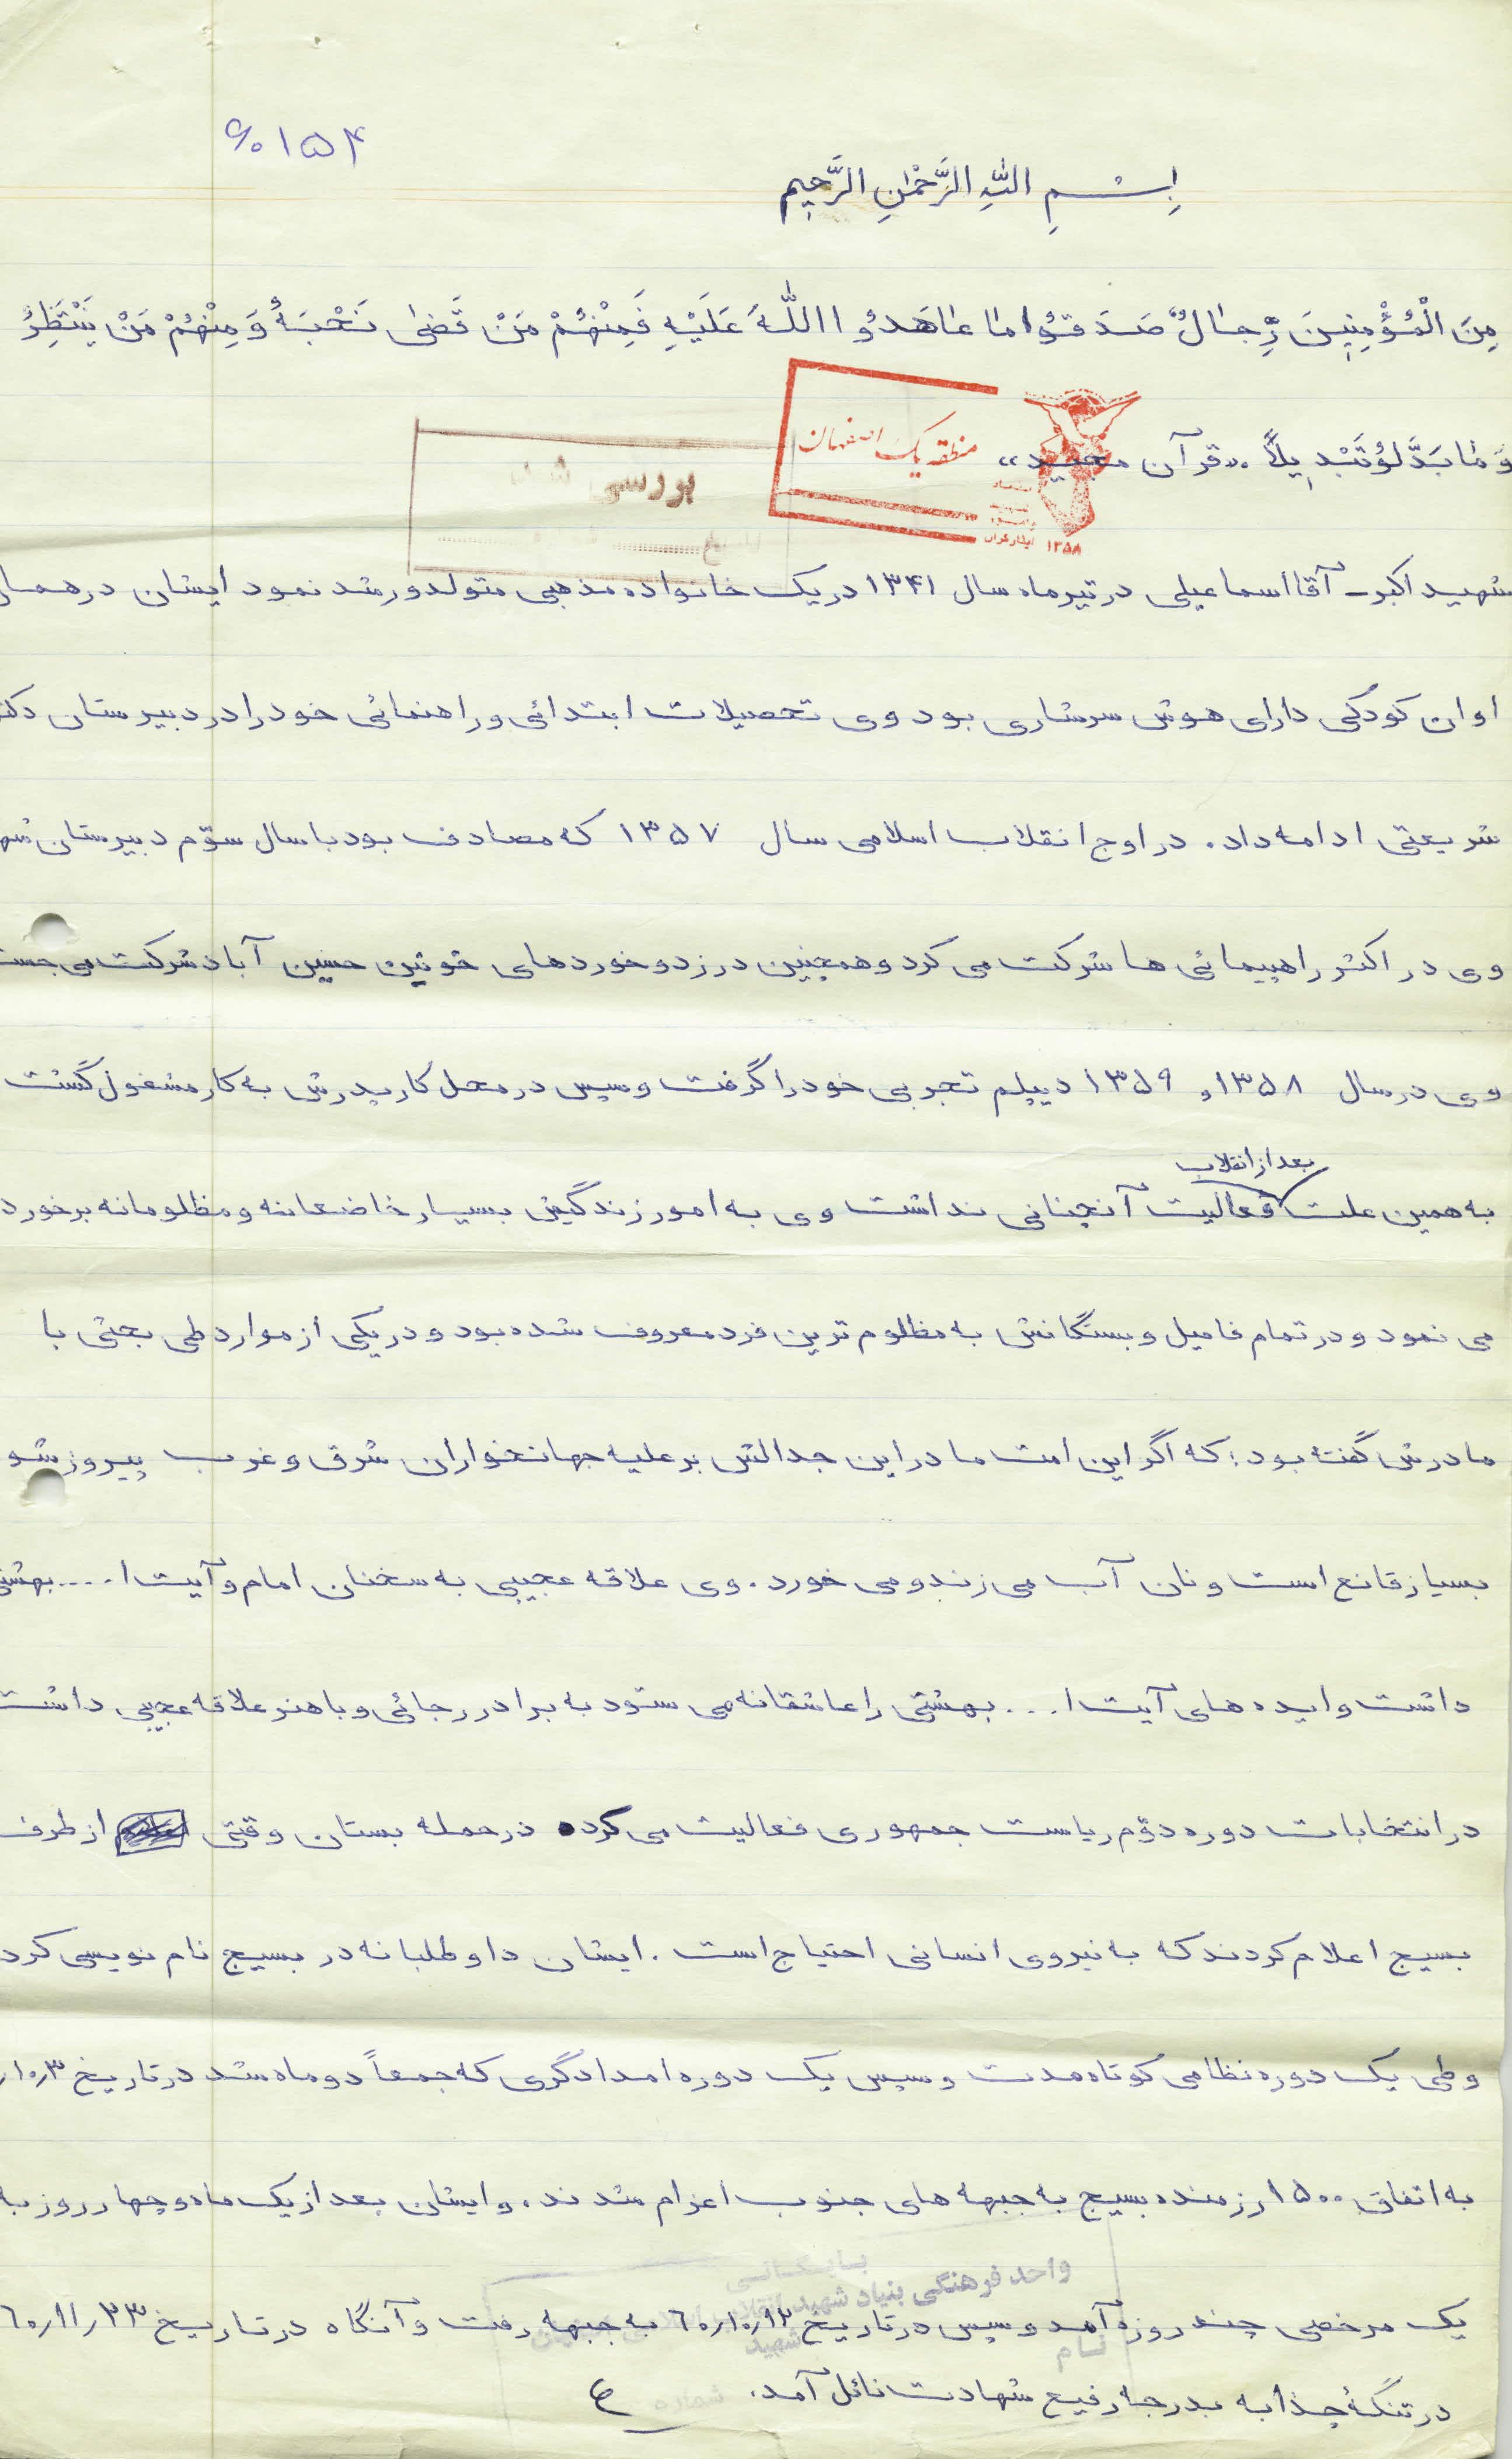 ۶۰۱۵۴
بِسْمِ اللَّهِ الرَّحْمٰنِ الرَّحِیمِ
مِنَ الْمُؤْمِنِینَ رِجٰالٌ صَدَقُوا مٰا عٰاهَدُوا اللّٰهَ عَلَیْهِ فَمِنْهُمْ مَنْ قَضیٰ نَحْبَهُ وَ مِنْهُمْ مَنْ یَنْتَظِرُ
وَ مٰا بَدَّلوُ تَبْدِیلاً. «قرآن مجید»
منطقه یک اصفهان
۱۳۵۸
بررسی شد
شهید اکبر - آقا اسماعیلی در تیرماه سال ۱۳۴۱ در یک خانواده مذهبی متولد و رشد نمود ایشان در همان
اوان کودکی دارای هوش سرشاری بود وی تحصیلات ابتدائی و راهنمائی خود را در دبیرستان دکتر
شریعتی ادامه داد. در اوج انقلاب اسلامی سال ۱۳۵۷ که مصادف بود با سال سوّم دبیرستان
وی در اکثر راهپیمائی ها شرکت می کرد و همچنین در زد و خوردهای خونین حسین آباد شرکت می جست
وی در سال ۱۳۵۸ و ۱۳۵۹ دیپلم تجربی خود را گرفت و سپس در محل کار پدرش به کار مشغول گشت
بعد از انقلاب
به همین علت فعالیت آنچنانی نداشت وی به امور زندگیش بسیار خاضعانه و مظلومانه برخورد
می نمود و در تمام فامیل و بستگانش به مظلوم ترین فرد معروف شده بود و در یکی از موارد طی بحثی با
مادرش گفته بود: که اگر این امت ما در این جدالش بر علیه جهانخواران شرق و غرب پیروز شو
بسیار قانع است و نان آب می زند و می خورد. وی علاقه عجیبی به سخنان امام و آیت ا.... بهشتی
داشت و ایده های آیت ا... بهشتی را عاشقانه می ستود به برادر رجائی و با هنر علاقه عجیبی داشت
در انتخابات دوره دوّم ریاست جمهوری فعالیت می کرد. در حمله بستان وقتی از طرف
بسیج اعلام کردند که به نیروی انسانی احتیاج است. ایشان داوطلبانه در بسیج نام نویسی کرد
و طی یک دوره نظامی کوتاه مدت و سپس یک دوره امدادگری که جمعاً دو ماه شد در تاریخ ۱۰٫۳
به اتفاق ۱۵۰۰ رزمنده بسیج به جبهه های جنوب اعزام شدند. و ایشان بعد از یک ماه و چهار روز به
بایگانی
واحد فرهنگی بنیاد شهید انقلاب
یک مرخصی چند روزه آمد و سپس در تاریخ ۶۰٫۱۰٫۱۲ به جبهه رفت و آنگاه در تاریخ ۶۰٫۱۱٫۲۳
نام شهید
در تنگهٔ چذابه بدرجه رفیع شهادت نائل آمد.
شماره